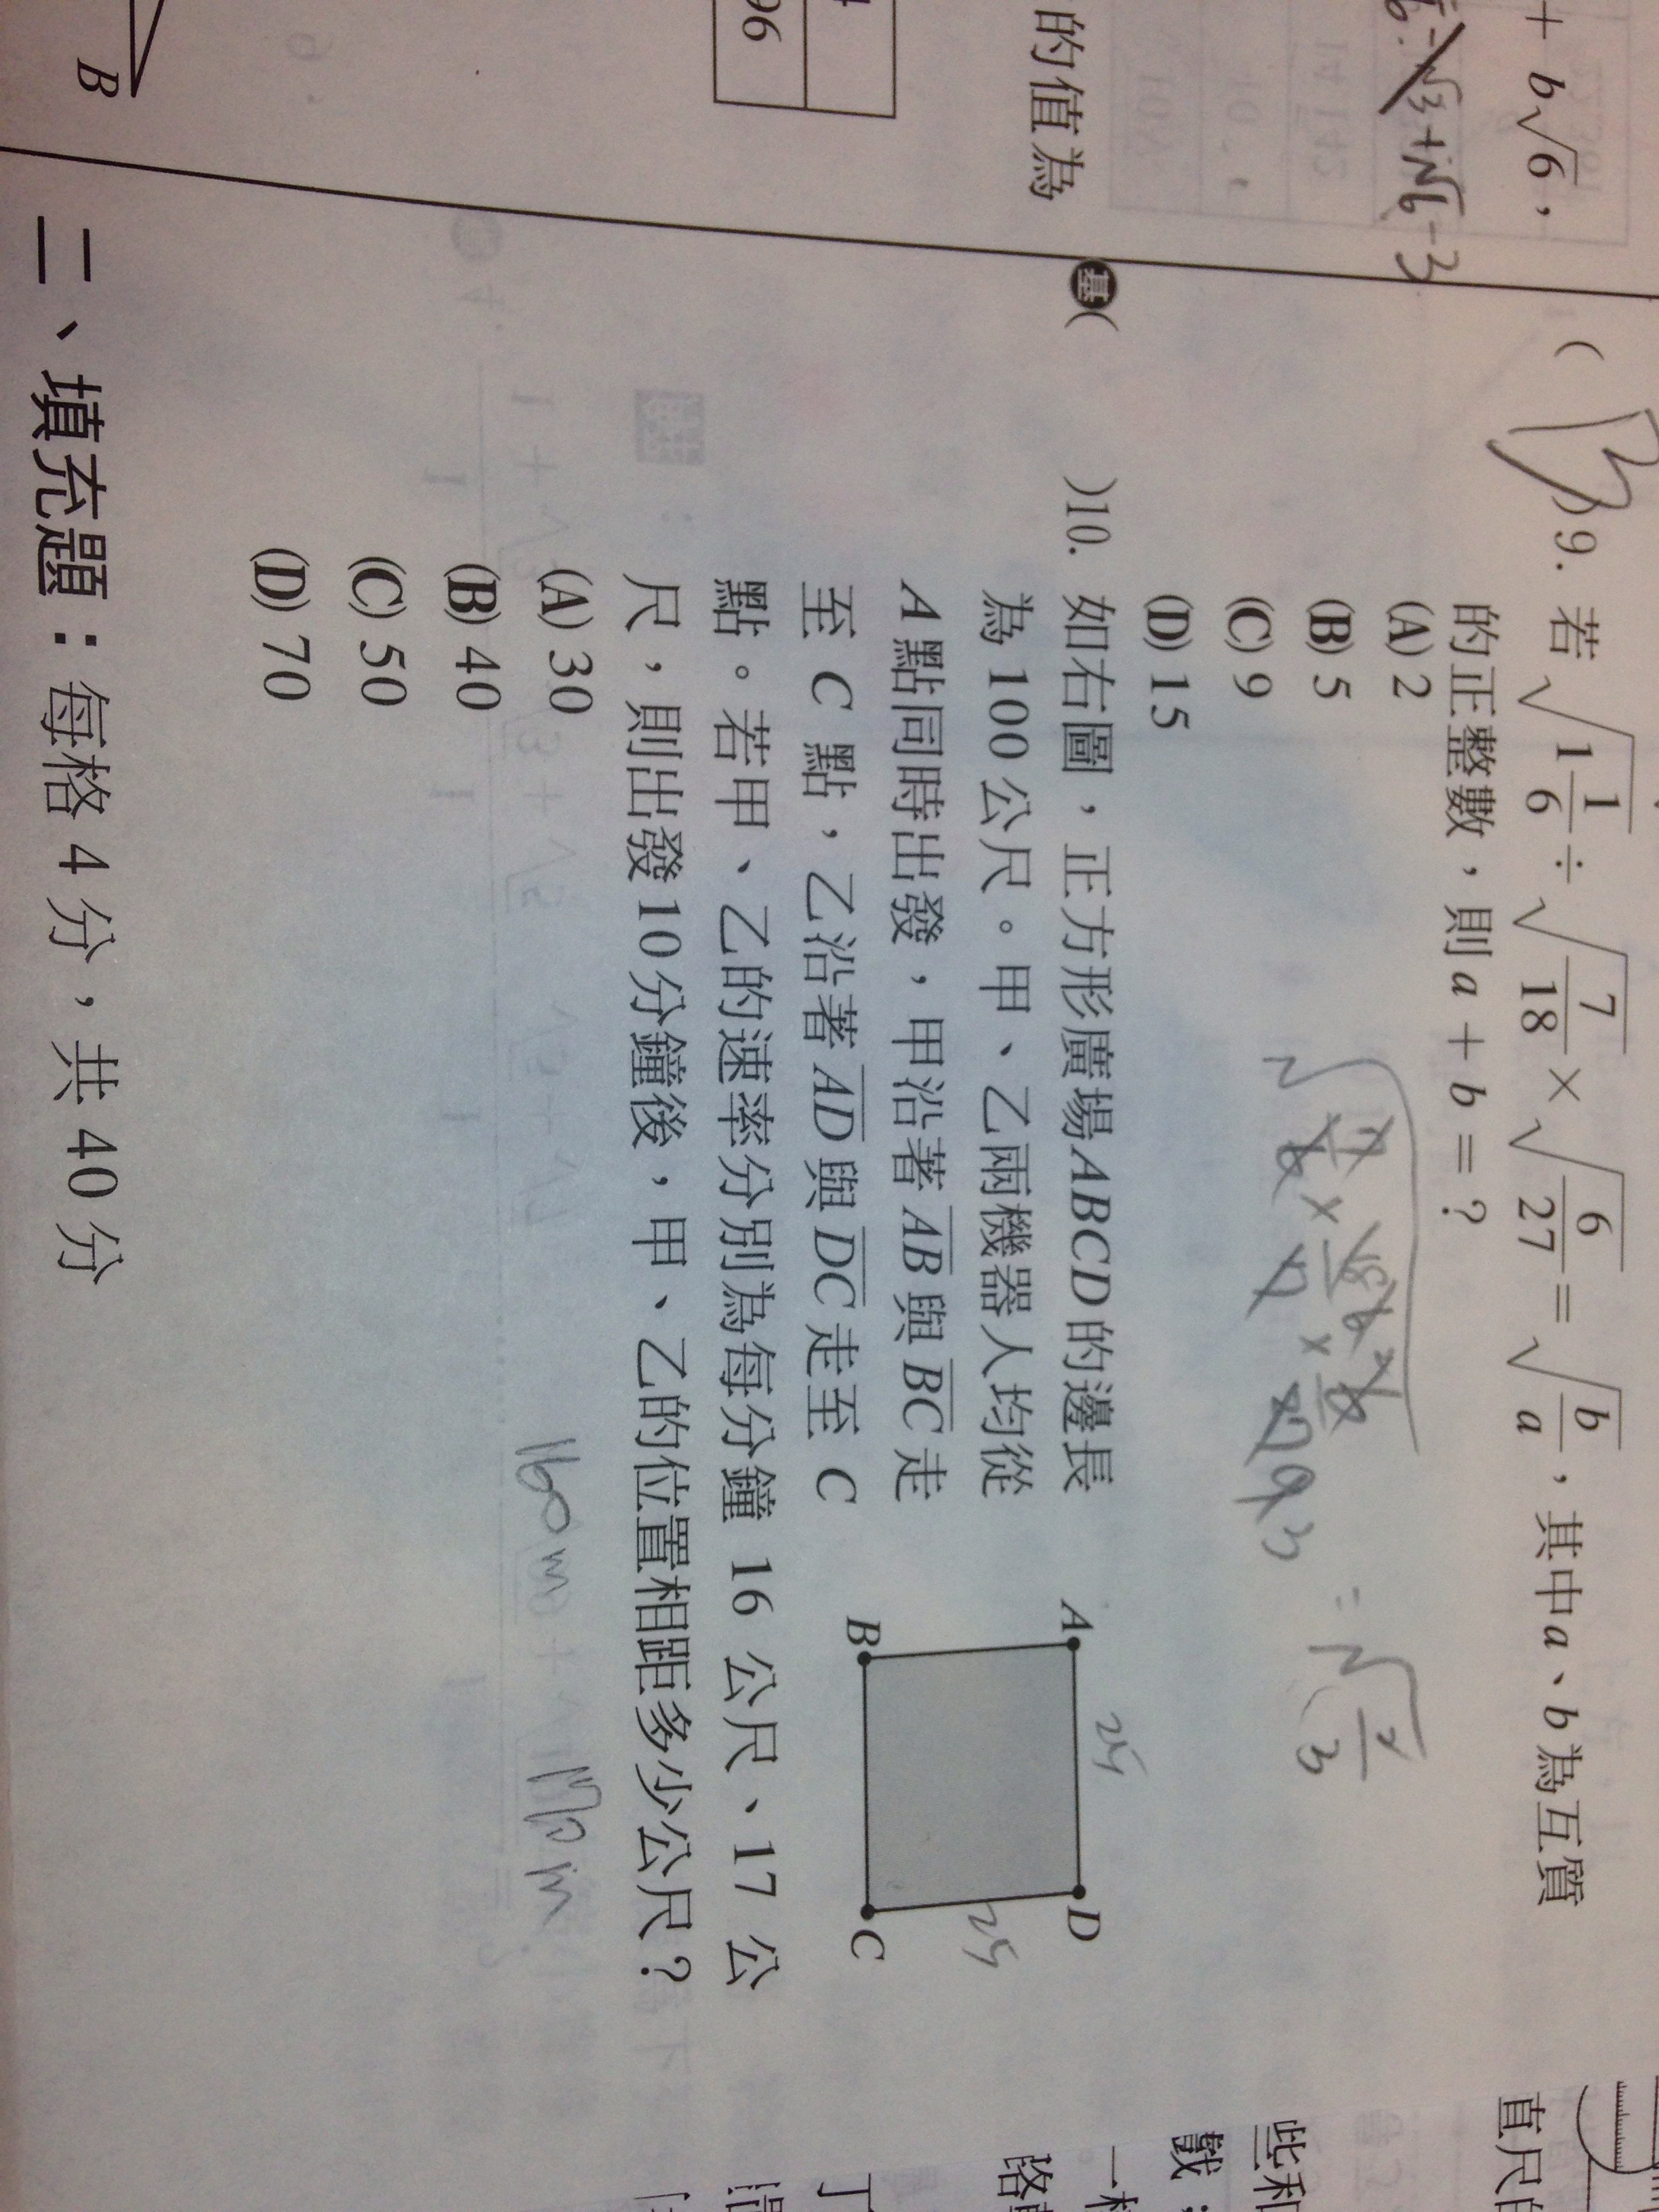 + b√6，
-√3+√6-3
的值為
96
B
( B )9. 若 √(1 1/6) ÷ √(7/18) × √(6/27) = √(b/a)，其中a、b為互質
的正整數，則a + b = ？
(A) 2
(B) 5
(C) 9
(D) 15
= √(2/3)
基( )10. 如右圖，正方形廣場ABCD的邊長
為100公尺。甲、乙兩機器人均從
A點同時出發，甲沿著AB與BC走
至C點，乙沿著AD與DC走至C
點。若甲、乙的速率分別為每分鐘16公尺、17公
尺，則出發10分鐘後，甲、乙的位置相距多少公尺？
A
D
B
C
(A) 30
(B) 40
(C) 50
(D) 70
160m
170m
二、填充題：每格4分，共40分
直尺
些和
戳；